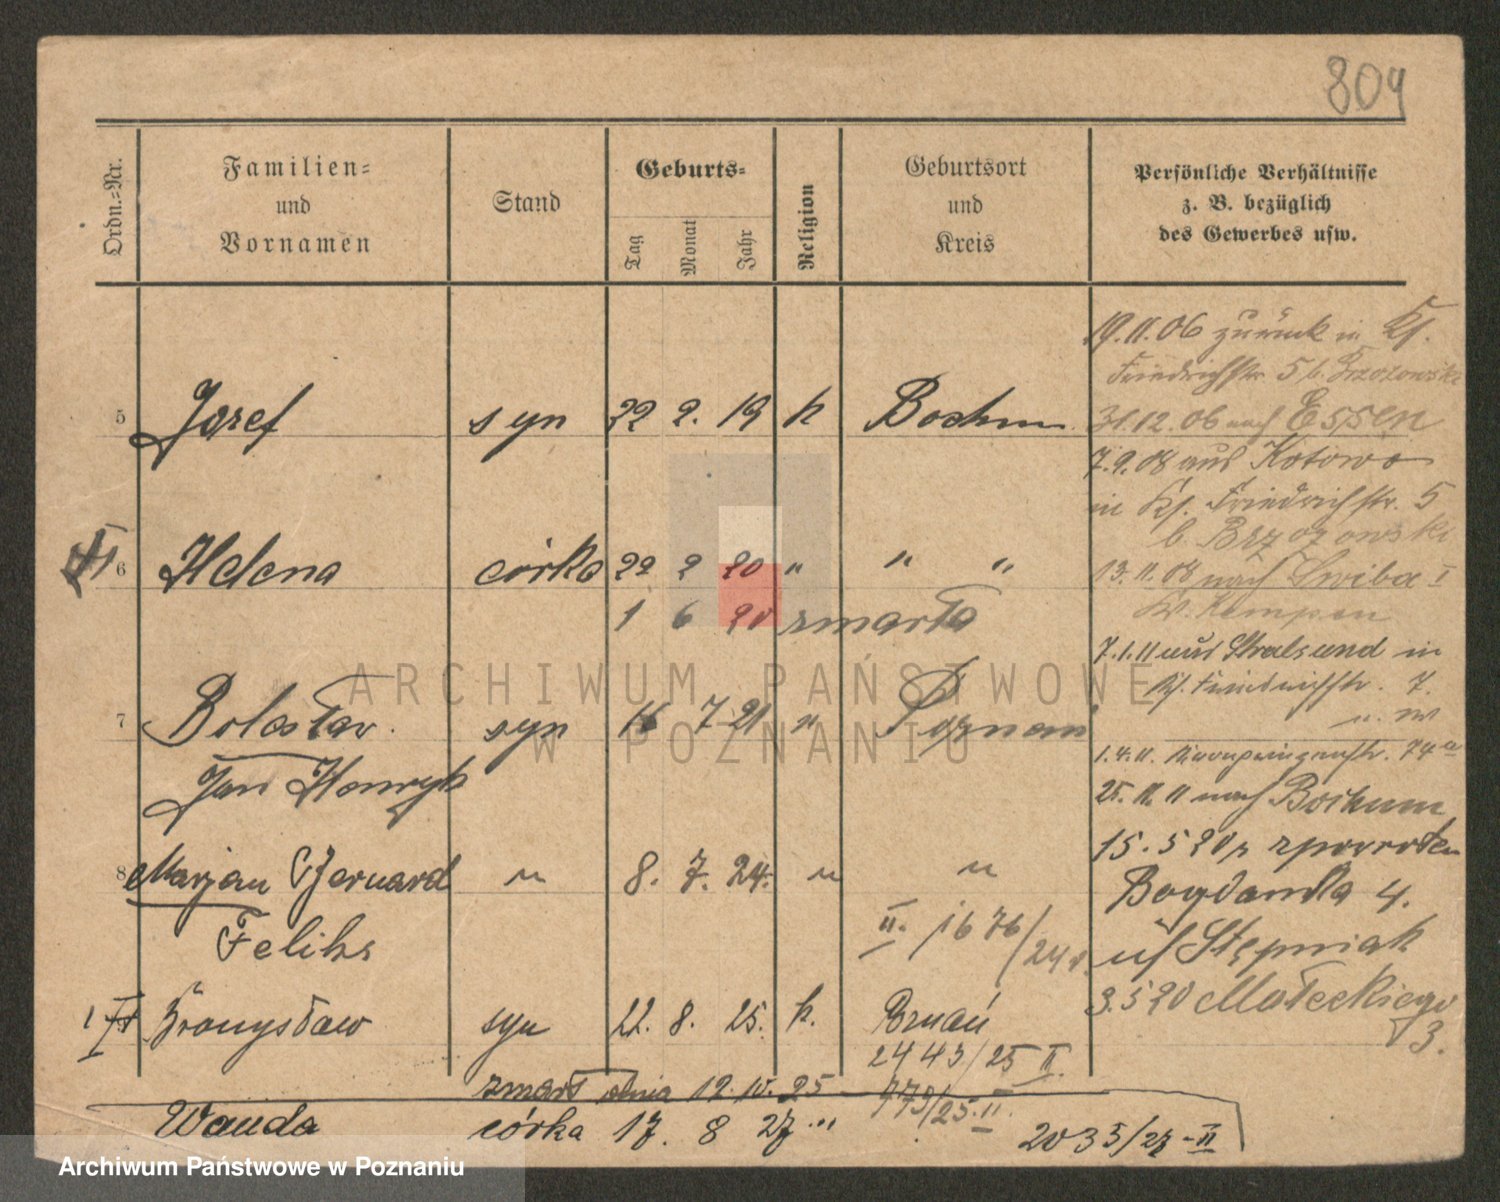 804
Ordn.-Nr.
Familien-
und
Vornamen
Stand
Geburts-
Tag
Monat
Jahr
Religion
Geburtsort
und
Kreis
Persönliche Verhältnisse
z. B. bezüglich
des Gewerbes usw.
5 Jozef syn 22 2. 19 k Bochum
6 Helena córka 22 2 20 " " "
1 6 20 zmarła
7 Bolesław syn 16 7 21 " Poznań
Jan Henryk
8 Marjan Bernard " 8. 7. 24. " "
Feliks II. 1676/24
Bronysław syn 22. 8. 25. k. Pznań
2443/25 II.
zmarł dnia 12. 10. 25 773/25. II.
Wanda córka 17. 8 27 " 2035/27-II
19.11.06 zurück in Kf.
Friedrichstr 5 b. Brzozowski
31.12.06 nach Essen
7.9.08 aus Kotowo
in Kf. Friedrichstr. 5
b. Brzozowski
13.11.08 nach Swiba I
Kr. Kempen
7.1.11 aus Stralsund in
Kf. Friedrichstr. 7.
1.4.11. Kronprinzenstr. 74a
25. 11. 11 nach Bochum
15. 5 20 r zpowrotem
Bogdanka 4.
uf Stępniak
3.5 20 Małeckiego
3.
ARCHIWUM PAŃSTWOWE
W POZNANIU
Archiwum Państwowe w Poznaniu